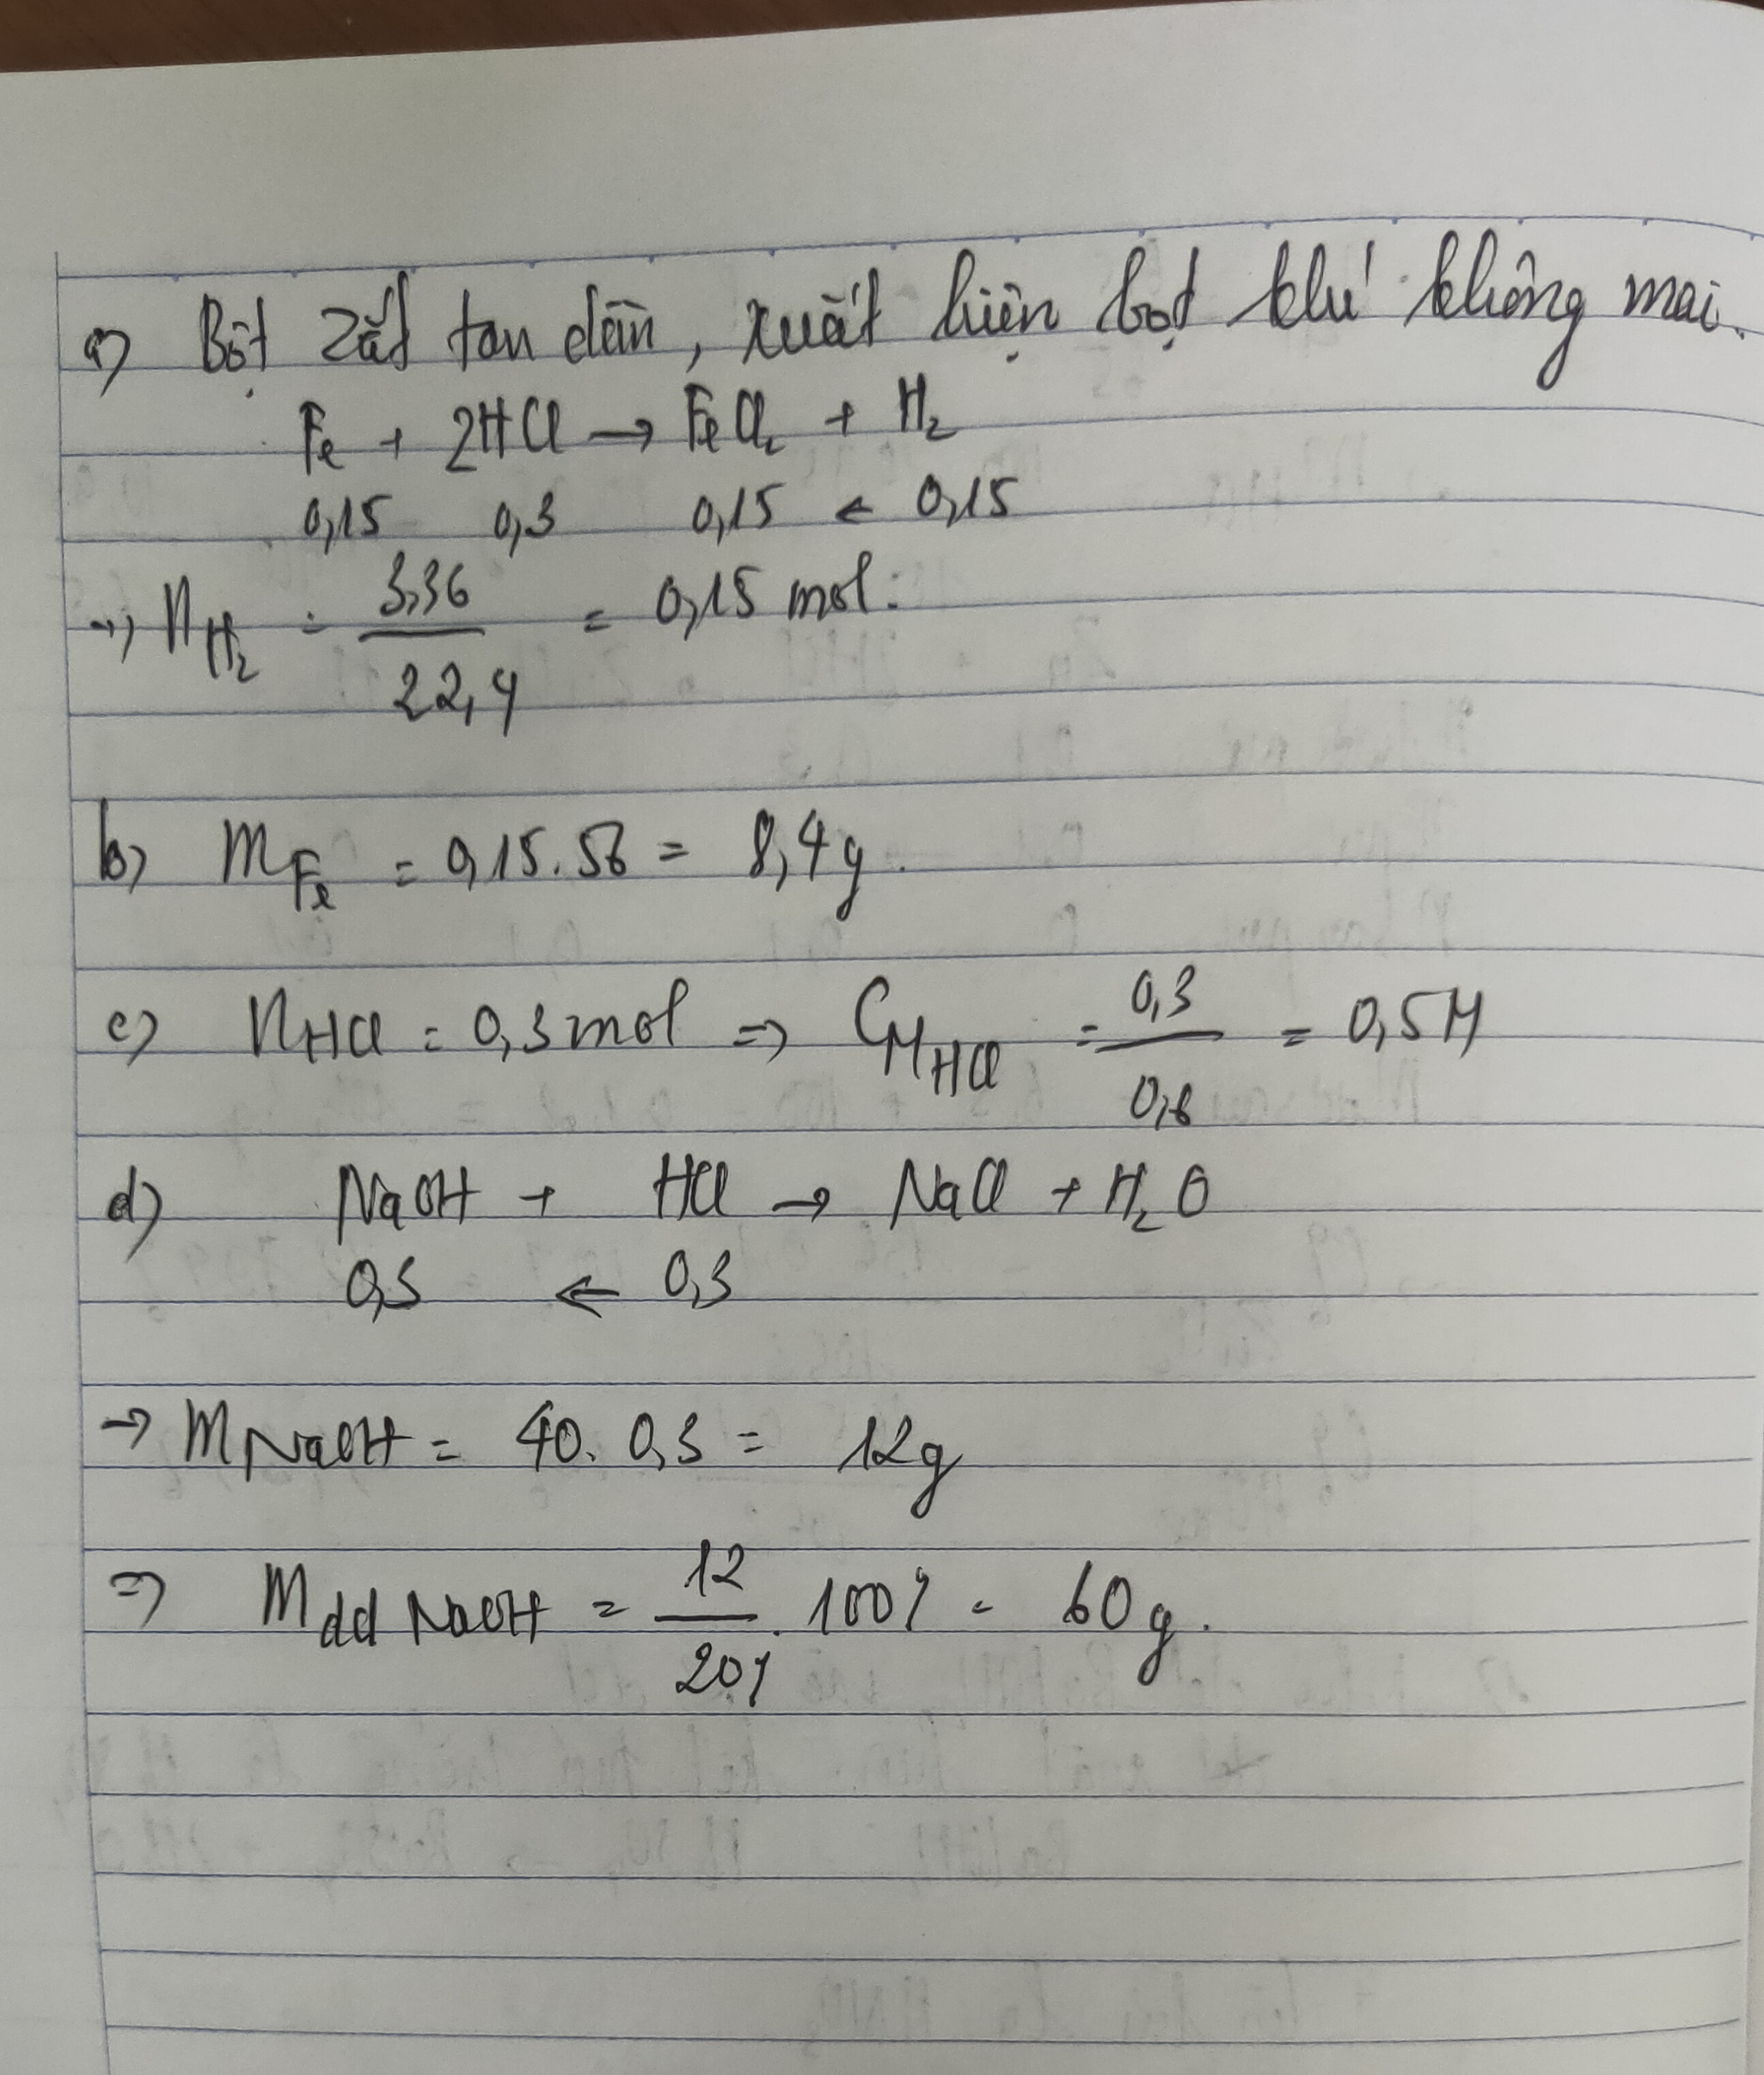 a) Bột sắt tan dần, xuất hiện bọt khí không mai.
Fe + 2HCl → FeCl₂ + H₂
0,15 0,3 0,15 ← 0,15
→ n H₂ = 3,36 / 22,4 = 0,15 mol.
b) m Fe = 0,15.56 = 8,4g.
c) nHCl = 0,3mol => CM HCl = 0,3 / 0,6 = 0,5M
d) NaOH + HCl → NaCl + H₂O
0,3 ← 0,3
→ m NaOH = 40. 0,3 = 12g
=> m dd NaOH = 12 / 20% . 100% = 60g.